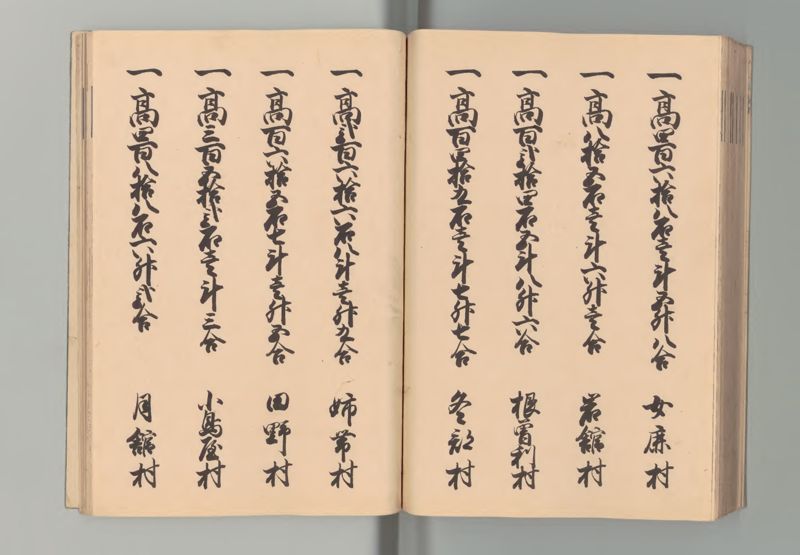 一高四百六拾八石壱斗五升八合　女鹿村
一高八拾五石壱斗六升壱合　岩舘村
一高百弐拾四石五斗八升六合　根曽利村
一高百四拾九石壱斗七升七合　冬部村
一高弐百六拾六石八斗壱升九合　姉帯村
一高百六拾五石七斗壱升五合　田野村
一高三百五拾弐石壱斗三合　小鳥屋村
一高四百八拾八石六升弐合　月舘村